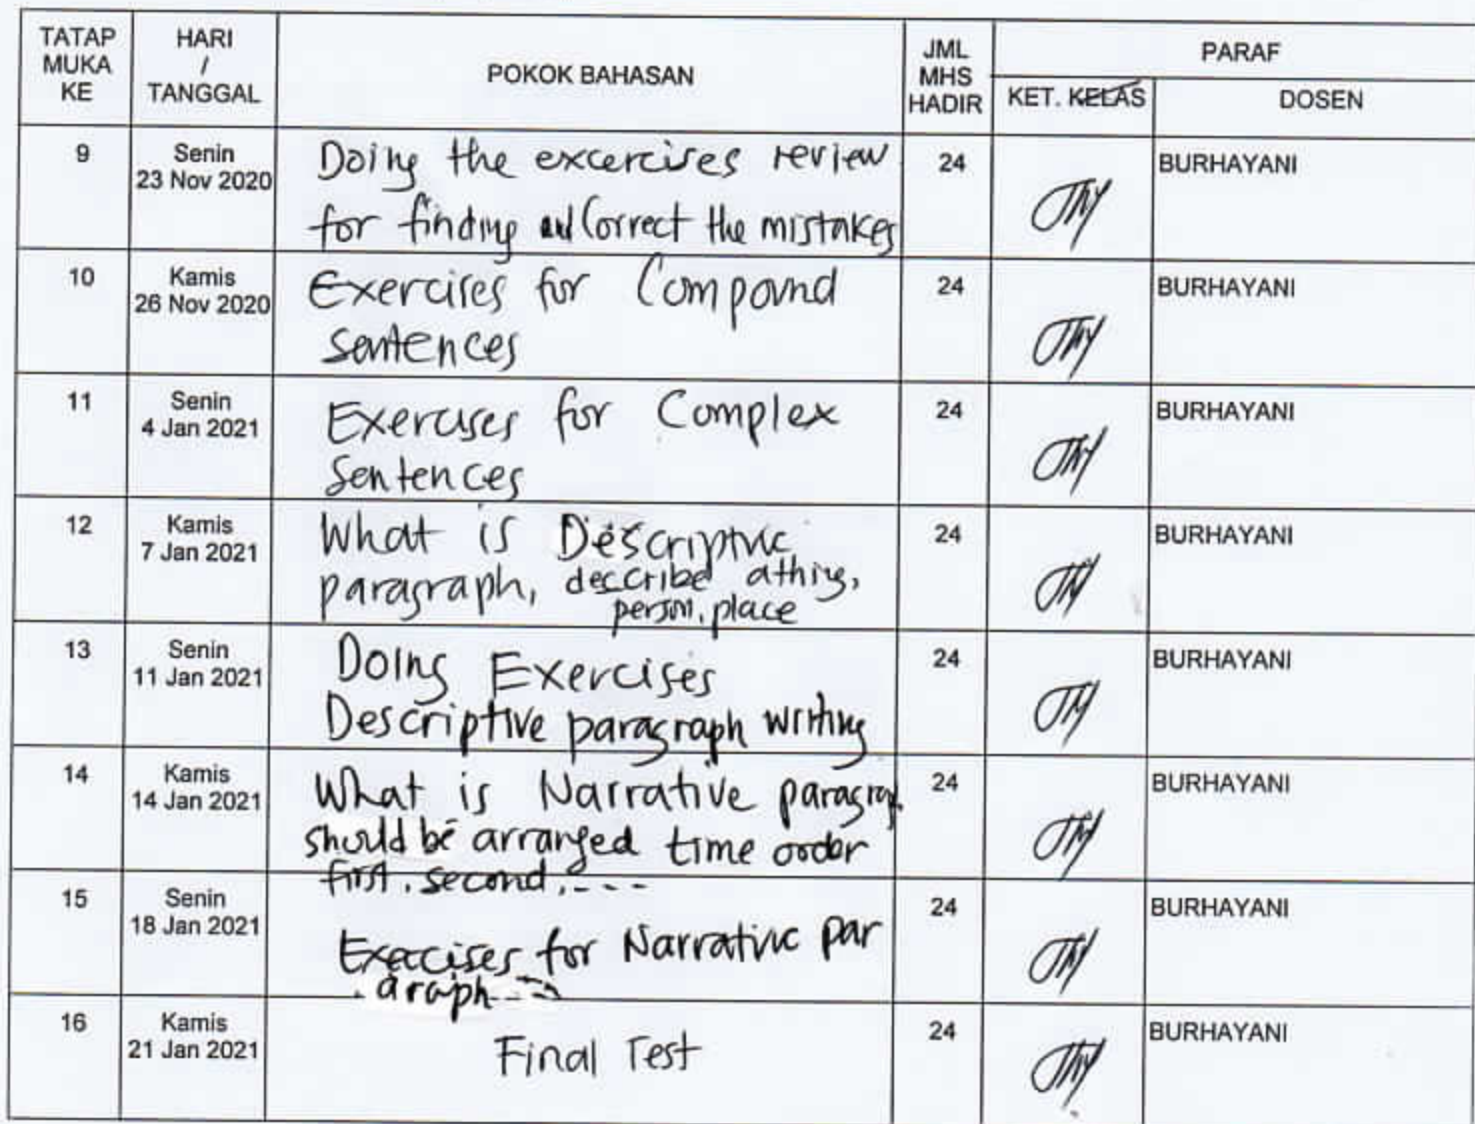 TATAP MUKA KE
HARI / TANGGAL
POKOK BAHASAN
JML MHS HADIR
PARAF
KET. KELAS
DOSEN
9
Senin
23 Nov 2020
Doing the excercises review
for finding and Correct the mistakes
24
BURHAYANI
10
Kamis
26 Nov 2020
Exercises for Compound
sentences
24
BURHAYANI
11
Senin
4 Jan 2021
Exercises for Complex
Sentences
24
BURHAYANI
12
Kamis
7 Jan 2021
What is Descriptive
paragraph, describe a thing,
person, place
24
BURHAYANI
13
Senin
11 Jan 2021
Doing Exercises
Descriptive paragraph writing
24
BURHAYANI
14
Kamis
14 Jan 2021
What is Narrative paragrap
should be arranged time order
first, second, ---
24
BURHAYANI
15
Senin
18 Jan 2021
Exacises for Narrative par
araph
24
BURHAYANI
16
Kamis
21 Jan 2021
Final Test
24
BURHAYANI